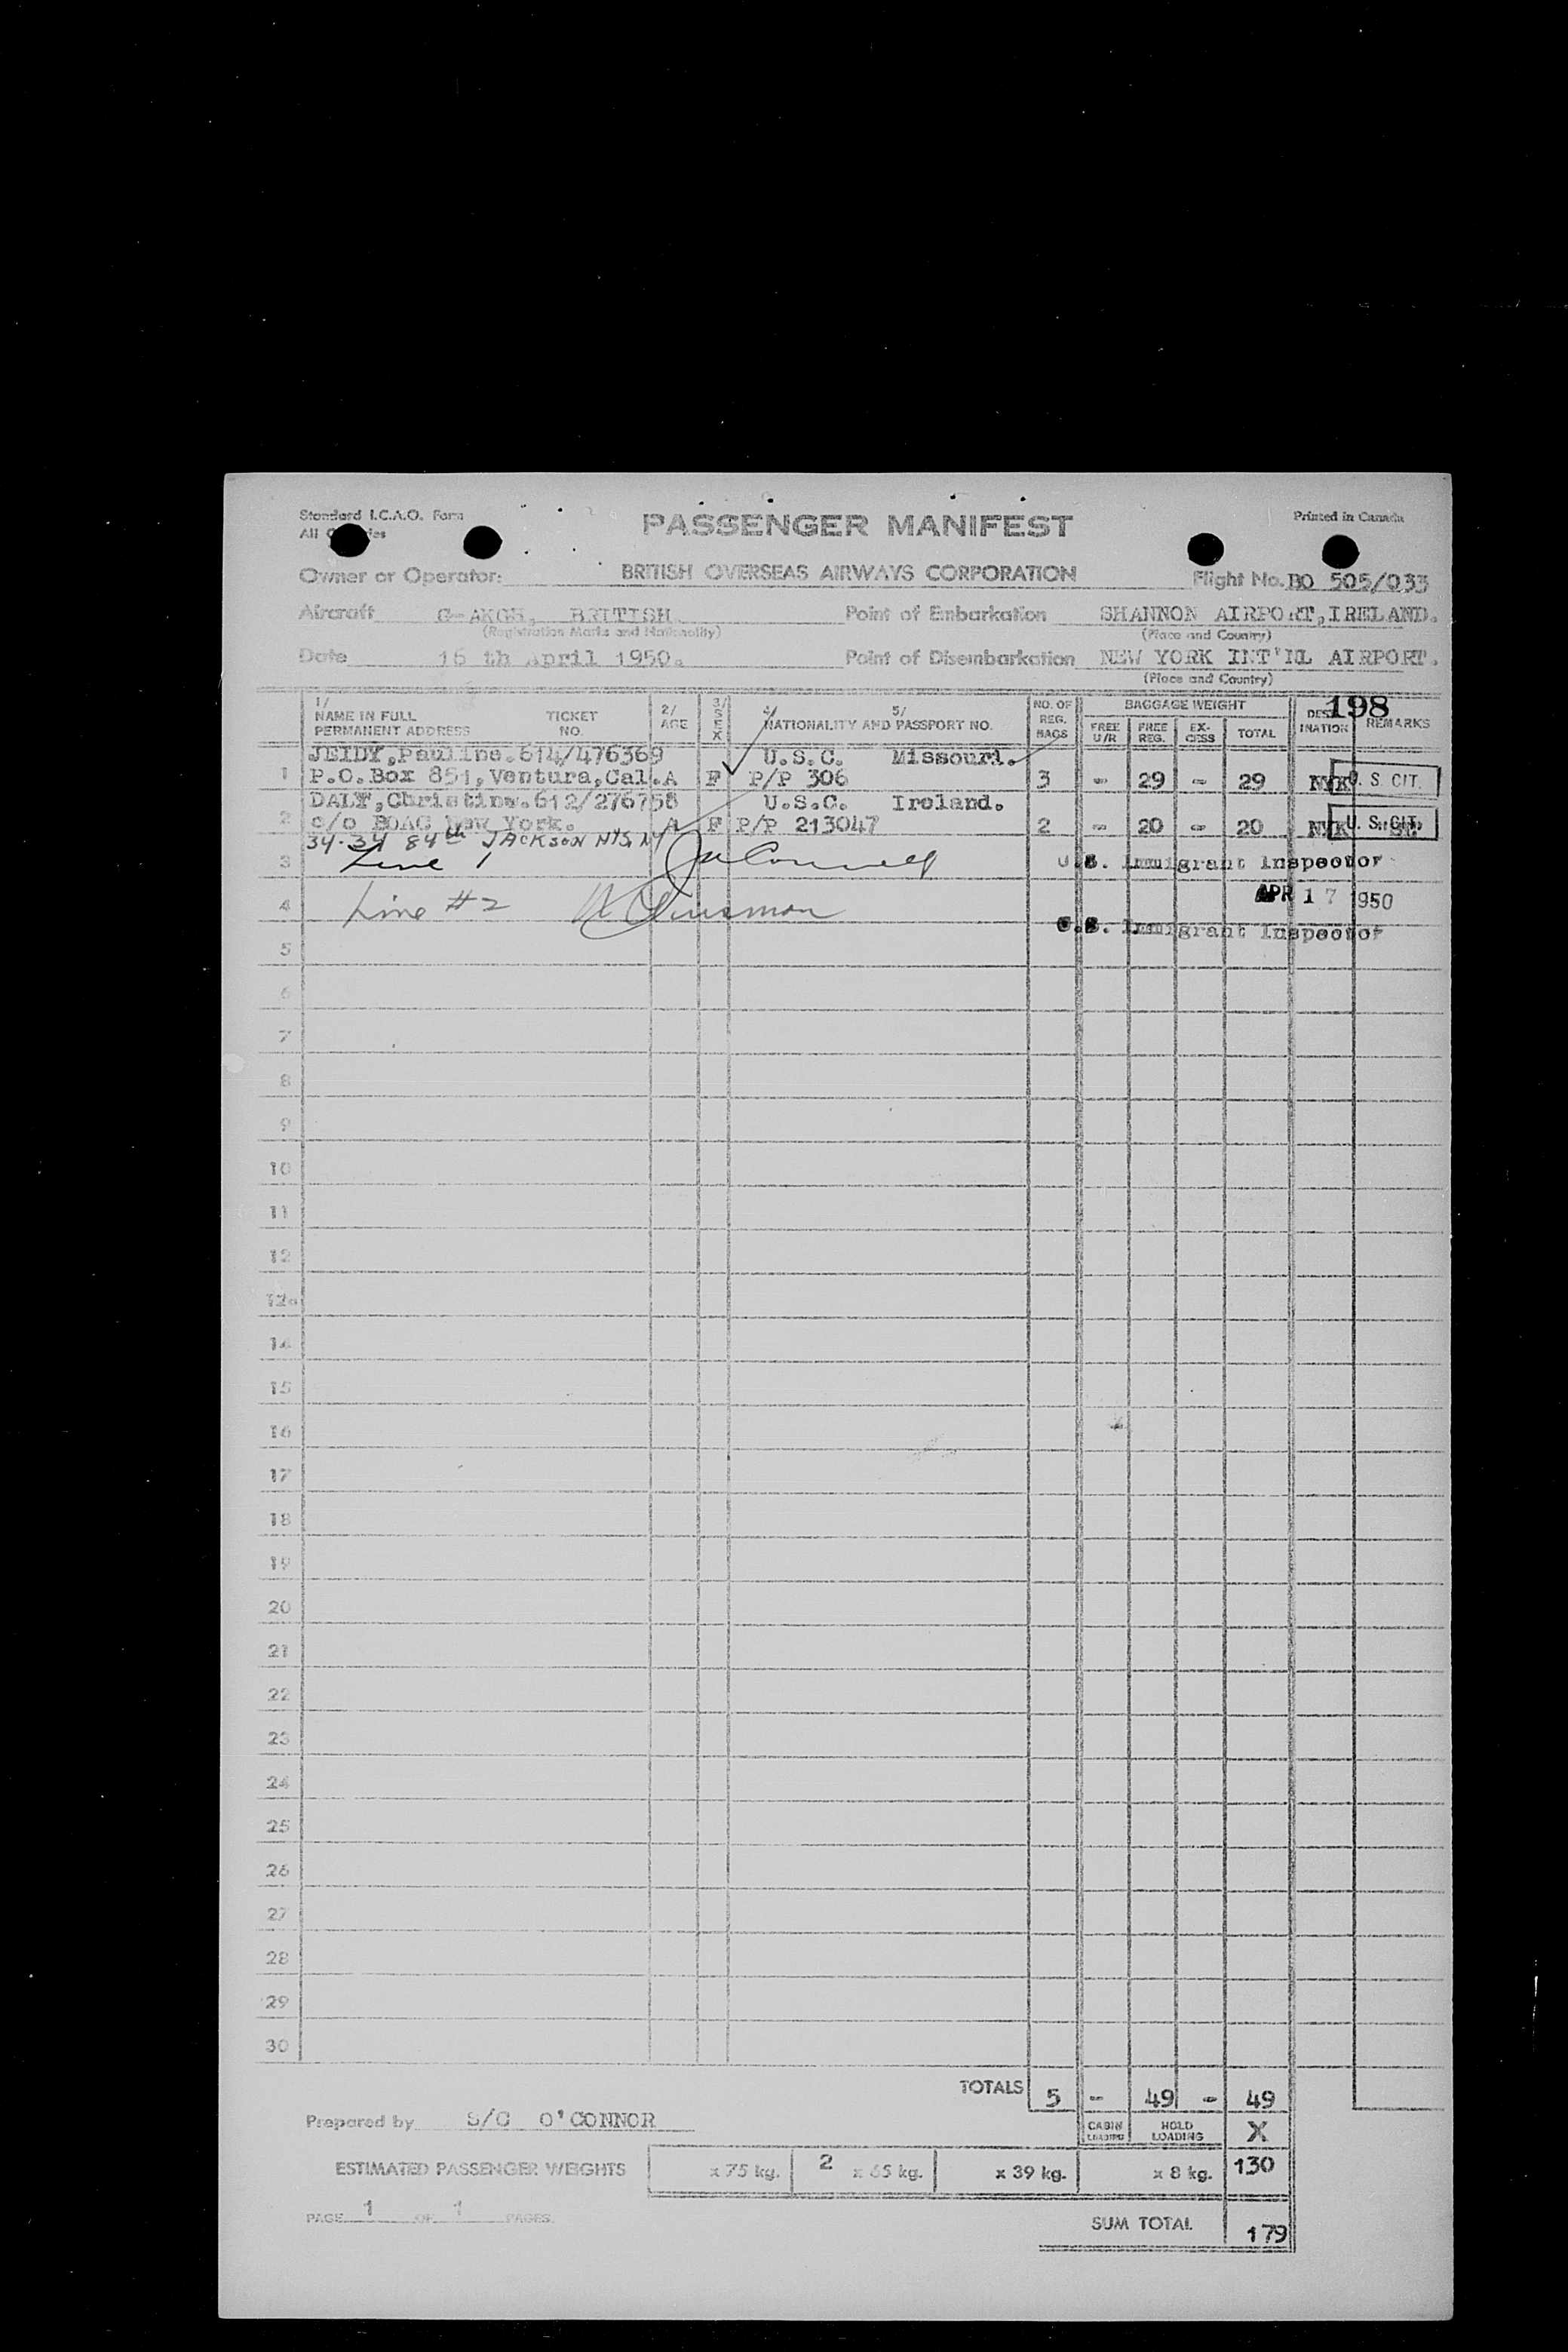 Standard I.C.A.O. Form
Printed in Canada
PASSENGER MANIFEST
Owner or Operator: BRITISH OVERSEAS AIRWAYS CORPORATION Flight No. BO 505/033
Aircraft BRITISH. Point of Embarkation SHANNON AIRPORT, IRELAND.
(Registration Marks and Nationality) (Place and Country)
Date 16 th April 1950. Point of Disembarkation NEW YORK INT'NL AIRPORT.
(Place and Country)
198
1/ NAME IN FULL PERMANENT ADDRESS TICKET NO. 2/ AGE 3/ SEX 4/ 5/ NATIONALITY AND PASSPORT NO. NO. OF REG. BAGS BAGGAGE WEIGHT FREE U/R FREE REG. EX-CESS TOTAL DESTINATION REMARKS
JEIDY, Pauline. 614/476369 U.S.C. Missouri.
1 P.O.Box 851, Ventura, Cal. A F P/P 306 3 - 29 - 29 NYK U. S. CIT.
DALY, Christine. 612/276758 U.S.C. Ireland.
2 c/o BOAC New York. A F P/P 213047 2 - 20 - 20 NYK U. S. CIT.
34-34 84th JACKSON HTS, NY
3 Line 1 U.S. Immigrant Inspector
4 Line #2 APR 17 1950
U.S. Immigrant Inspector
5
6
7
8
9
10
11
12
12a
14
15
16
17
18
19
20
21
22
23
24
25
26
27
28
29
30
TOTALS 5 - 49 - 49
Prepared by S/O O'CONNOR CABIN LOADING HOLD LOADING X
ESTIMATED PASSENGER WEIGHTS x 75 kg. 2 x 65 kg. x 39 kg. x 8 kg. 130
PAGE 1 OF 1 PAGES.
SUM TOTAL 179